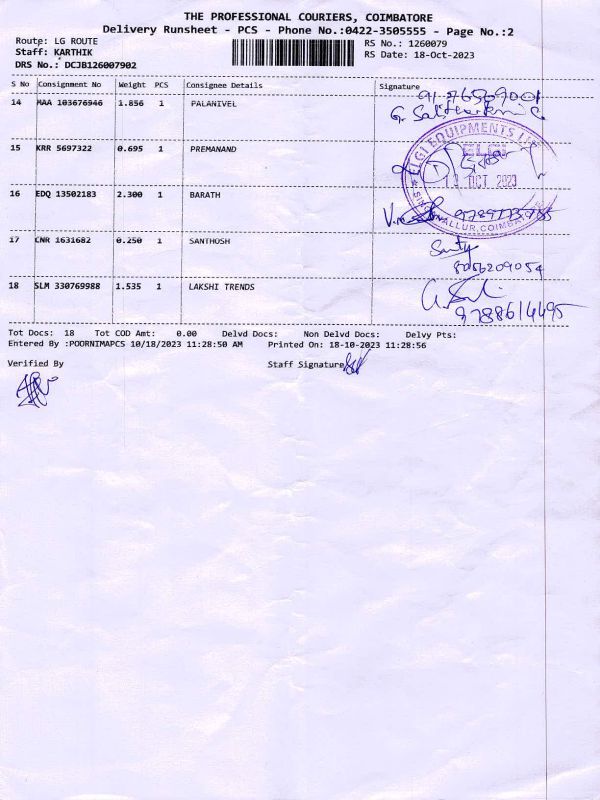 THE PROFESSIONAL COURIERS, COIMBATORE
Delivery Runsheet - PCS - Phone No.:0422-3505555 - Page No.:2
Route: LG ROUTE
RS No.: 1260079
Staff: KARTHIK
RS Date: 18-Oct-2023
DRS No.: DCJB126007902
S No Consignment No Weight PCS Consignee Details Signature
14 MAA 103676946 1.856 1 PALANIVEL
15 KRR 5697322 0.695 1 PREMANAND
ELGI EQUIPMENTS
ELGI
OCT 2023
16 EDQ 13502183 2.300 1 BARATH
17 CNR 1631682 0.250 1 SANTHOSH
8056209054
18 SLM 330769988 1.535 1 LAKSHI TRENDS
9788614495
Tot Docs: 18 Tot COD Amt: 0.00 Delvd Docs: Non Delvd Docs: Delvy Pts:
Entered By :POORNIMAPCS 10/18/2023 11:28:50 AM Printed On: 18-10-2023 11:28:56
Verified By Staff Signature